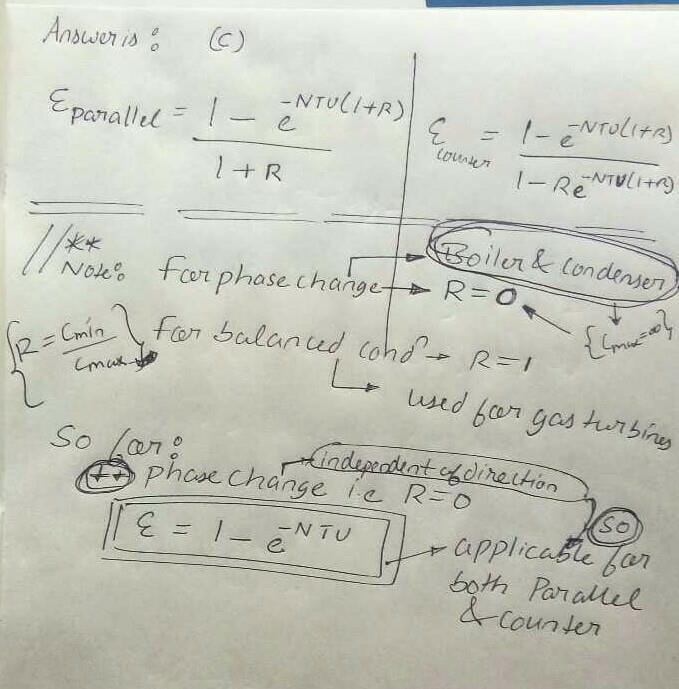 Answer is : (C)
ε parallel = 1 - e^-NTU(1+R) / 1 + R
ε counter = 1 - e^-NTU(1+R) / 1 - Re^-NTU(1+R)
//** Note: For phase change → Boiler & Condenser
→ R = 0
{Cmax = ∞}
{R = Cmin / Cmax} For balanced condn → R = 1
→ used for gas turbines
So for :
++ phase change i.e R = 0
→ independent of direction
ε = 1 - e^-NTU
So
→ applicable for
both Parallel
& counter